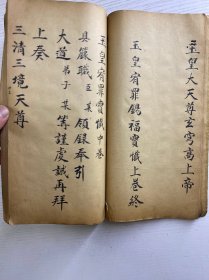 玉皇大天尊玄穹高上帝
玉皇宥罪錫福寶懺上卷終
玉皇宥罪寶懺中卷
具籙職臣某領錄奉引
大道弟子某等謹虔誠再拜
上奏
三清三境天尊